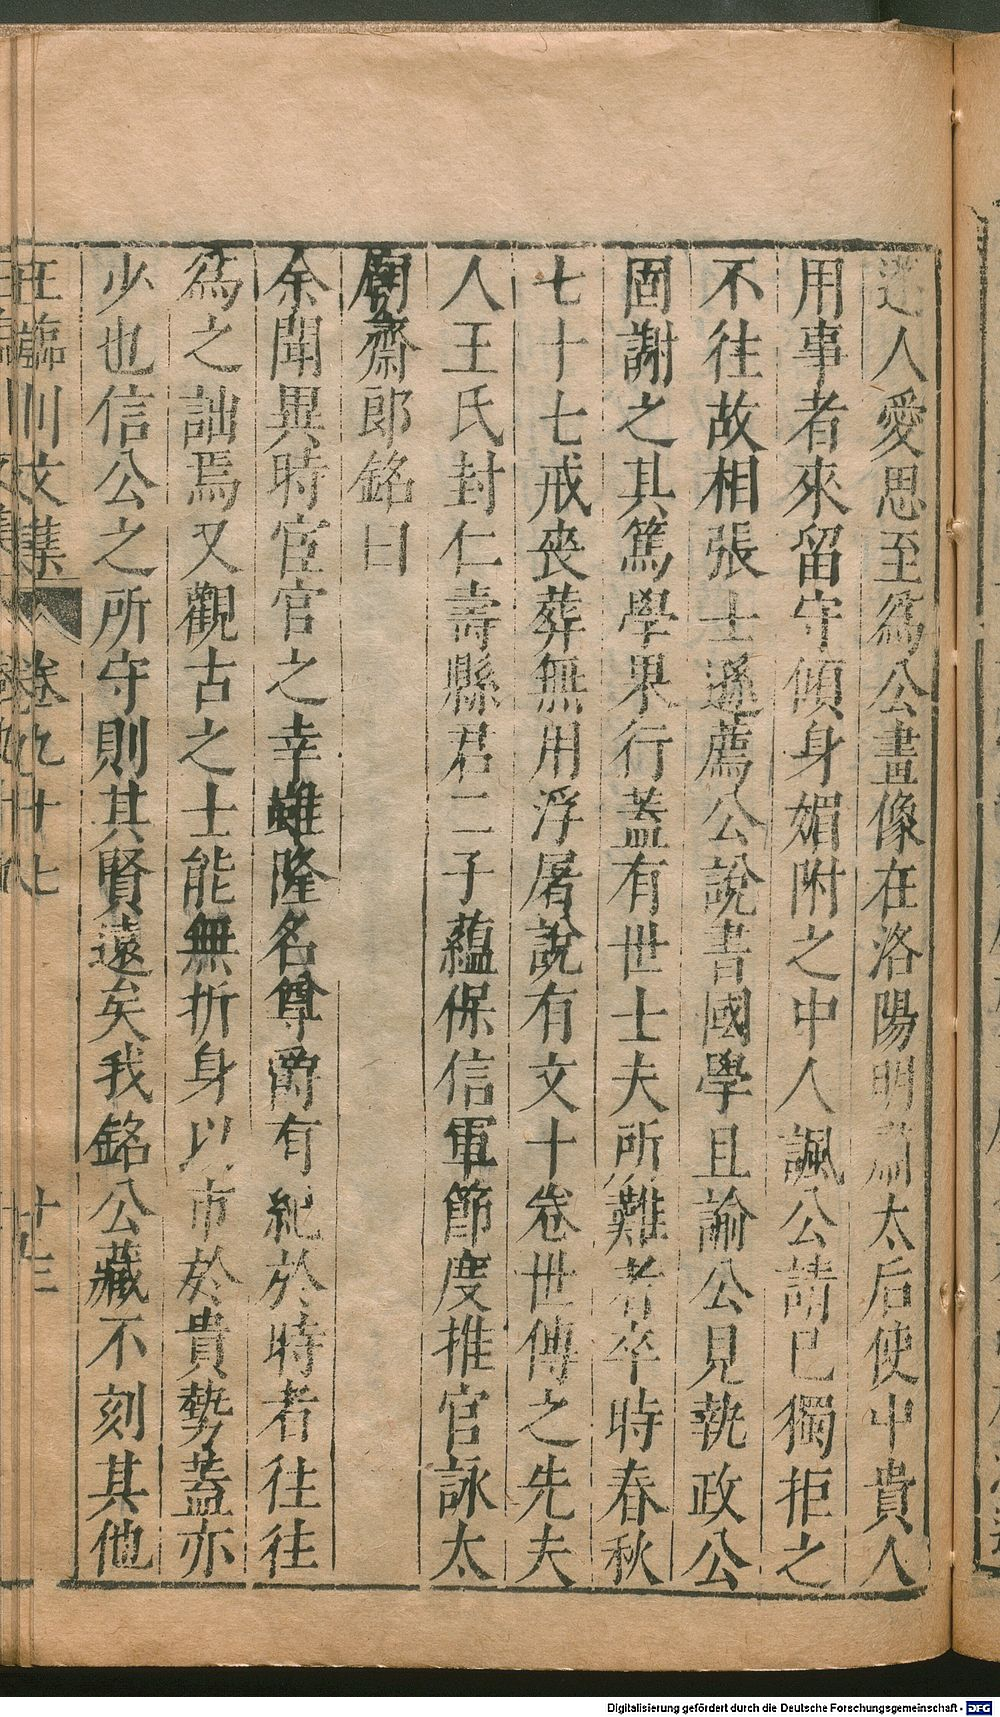 迯人愛思至爲公畫像在洛陽明肅太后使中貴人
用事者來留守傾身媚附之中人諷公請巳獨拒之
不往故相張士遜薦公說書國學且諭公見執政公
固謝之其篤學果行蓋有世士夫所難者卒時春秋
七十七戒喪葬無用浮屠說有文十卷世傳之先夫
人王氏封仁壽縣君二子蘊保信軍節度推官詠太
廟齋郎銘曰
余聞異時宦官之幸雄隆名尊爵有紀於時者往往
爲之詘焉又觀古之士能無折身以市於貴勢蓋亦
少也信公之所守則其賢遠矣我銘公藏不刻其他
王臨川文集 卷九十七 廿三
Digitalisierung gefördert durch die Deutsche Forschungsgemeinschaft - DFG